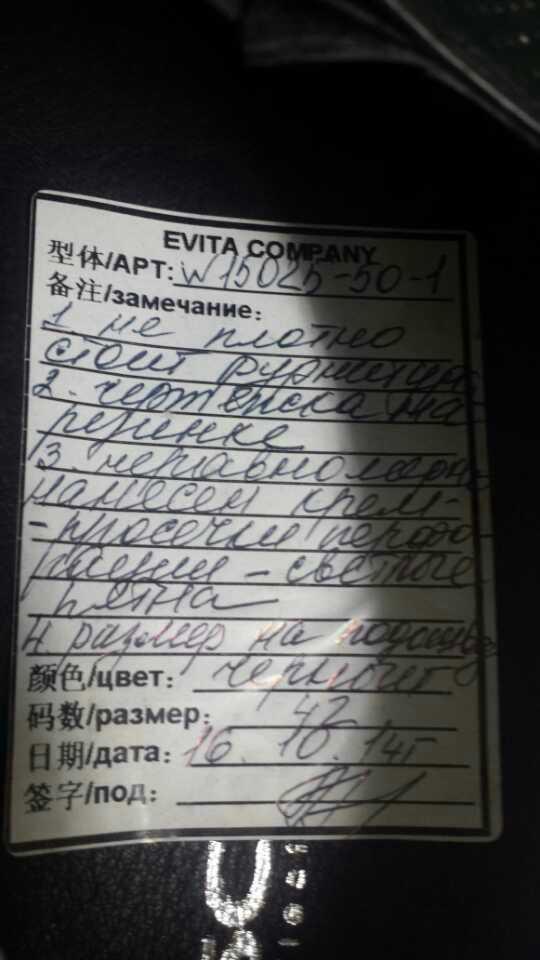 EVITA COMPANY
型体/АРТ: W15025-50-1
备注/замечание:
1. не плотно
стоит фурнитура
2. чертёжка на
резинке
3. неравномерно
нанесен крем-
-просечки перфо-
рации - светлые
пятна
4. размер на подошве
颜色/цвет: черный
码数/размер: 42
日期/дата: 16.10.14г
签字/под: